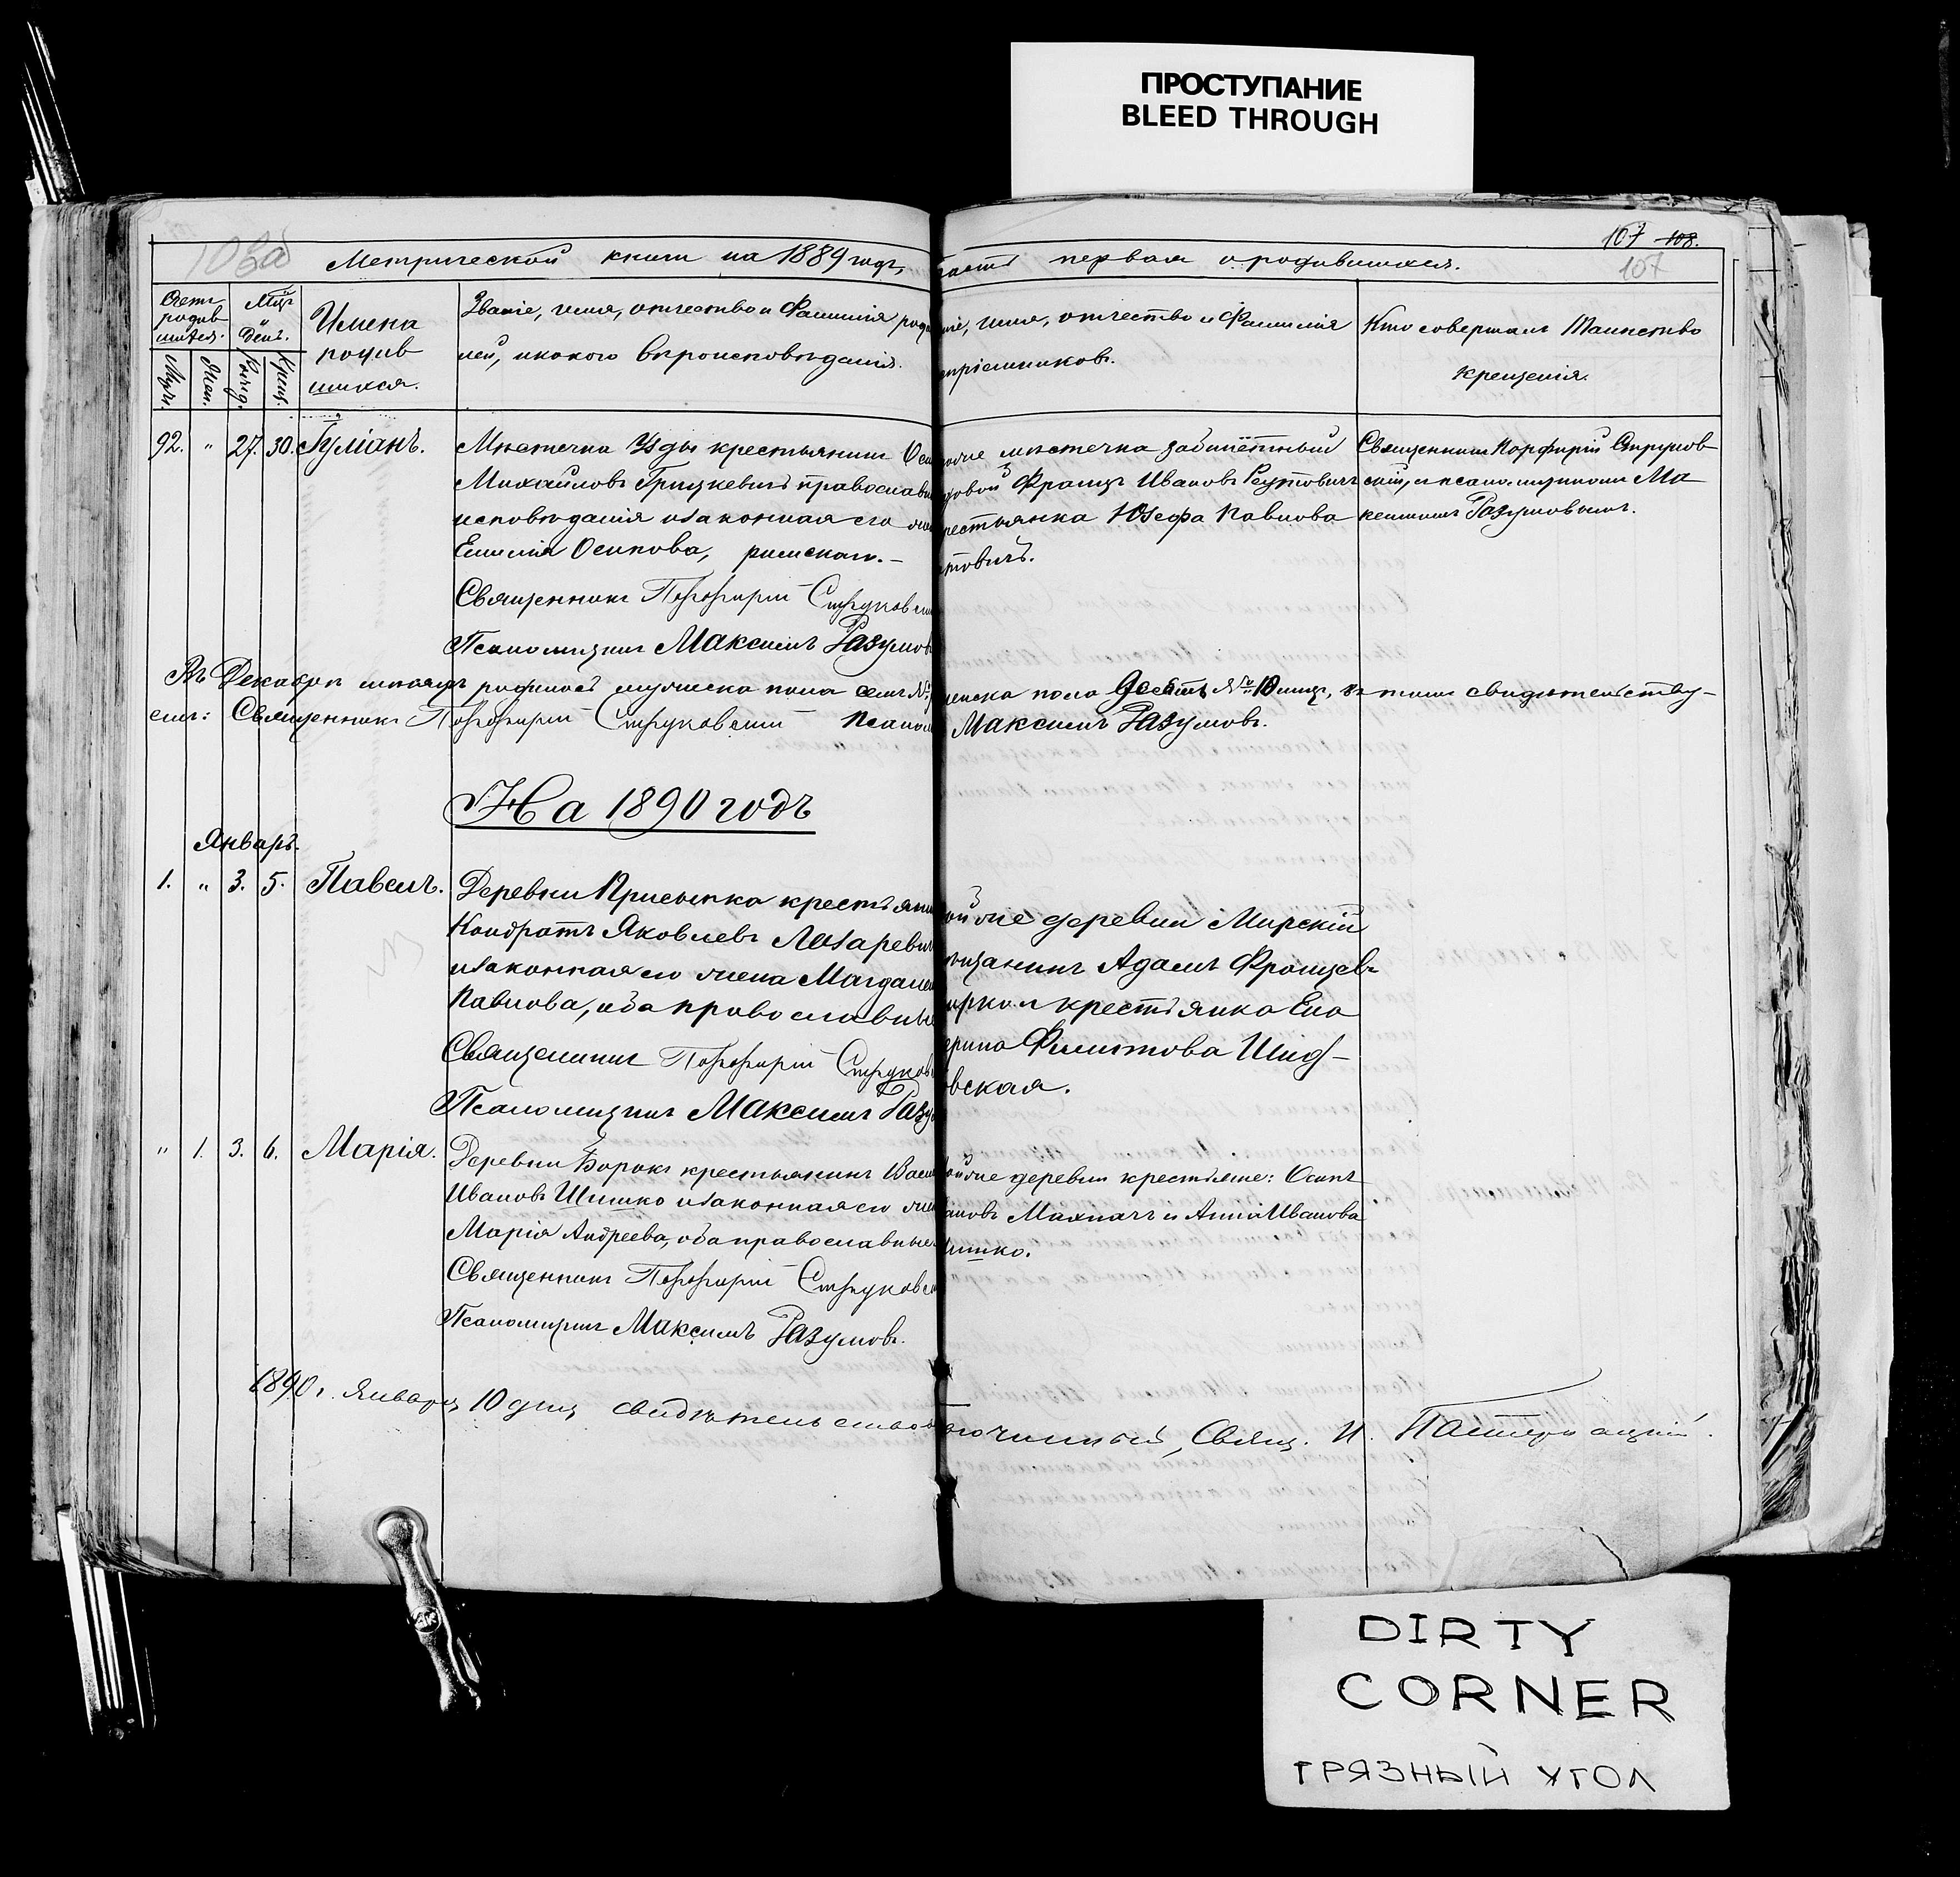 ПРОСТУПАНИЕ
BLEED THROUGH
107 108.
107
Метрической книги на 1889 годъ,
часть первая о родившихся.
Счетъ родив-шихся.
Муж.
Жен.
Мцъ и День.
Рожд.
Крещ.
Имена
родив
шихся.
Званіе, имя, отчество и Фамилія роди
лей, и какого вѣроисповѣданія.
ніе, имя, отчество и Фамилія
пріемниковъ.
Кто совершалъ Таинство
крещенія.
92. " 27. 30. Іуліанъ.
Мѣстечка Узды крестьянинъ Оси
Михайловъ Грицкевичъ православн
исповѣданія и законная его жен
Емилія Осипова, римскаго.–
Священникъ Порфирій Струковск
Псаломщикъ Максимъ Разумов
мѣстечка
довой Францъ Ивановъ Реутовичъ
рестьянка Юзефа Павлова
товичъ.
Священникъ Порфирій Струков
скій, и псаломщикомъ Ма
ксимомъ Разумовымъ.
Въ Декабрѣ мѣсяцѣ родилось мужеска пола семь №
женска пола Десять № 10 лицъ, въ томъ свидѣтельству-
емъ: Священникъ Порфирій Струковскій Псалом
Максимъ Разумовъ.
На 1890 годъ
Январь.
1. " 3. 5. Павелъ.
Деревни Присынка крестьяни
Кондратъ Яковлевъ Лазаревич
и законная его жена Магдале
Павлова, оба православны
Священникъ Порфирій Струков
Псаломщикъ Максимъ Разу
ой же деревни Мирскій
ѣщанинъ Адамъ Францев
крестьянка Ека
ерина Филиппова Шид-
овская.
" 1. 3. 6. Марія.
Деревни Борокъ крестьянинъ Васи
Ивановъ Шишко и законная его жен
Марія Андреева, оба православные.
Священникъ Порфирій Струковск
Псаломщикъ Максимъ Разумовъ.
ой же деревни крестьяне: Осипъ
ановъ Махначъ и Анна Иванова
ишко.
1890 г. Января 10 дня свидѣтельствов
гочинный, Свящ. И.
DIRTY
CORNER
ГРЯЗНЫЙ УГОЛ